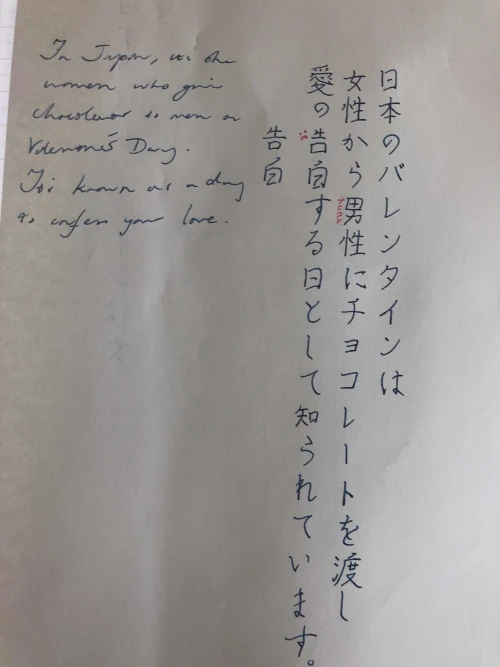 In Japan, it's the
women who give
chocolates to men on
Valentine's Day.
It's known as a day
to confess your love.
日本のバレンタインは
女性から男性にチョコレートを渡し
愛の告自する日として知られています。
告白